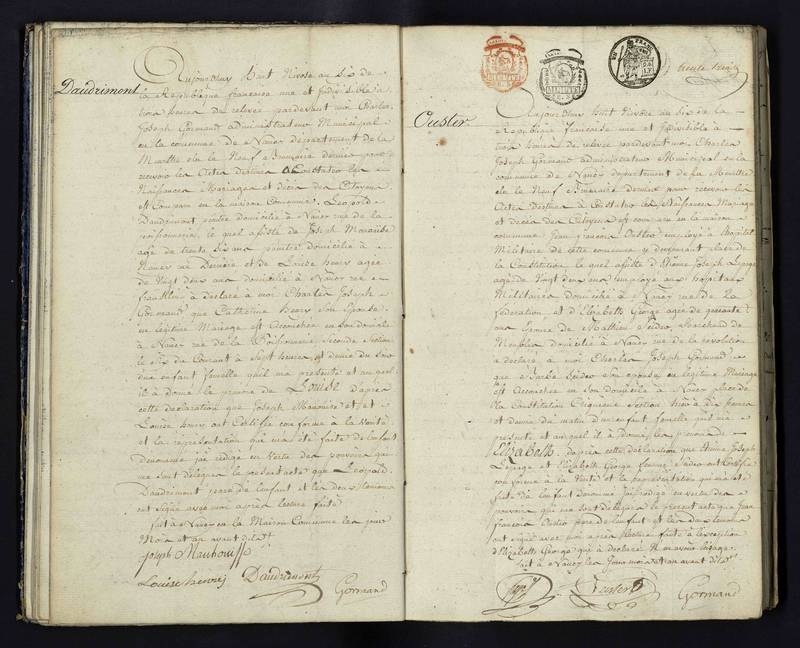 Daudrimont
Aujourd'huy huit Nivose an Six de
la Republique francaise une et Indivisible a
trois heures de relevée pardevant moi Charles
Joseph Gormand administrateur Municipal
de la
le Neuf Brumaire dernier pour
recevoir les Actes destinés a Constater les
Naissances Mariages et décès des Citoyens
est Comparu en la maison Commune Léopold
Daudrimont peintre domicilié a Nancy rue de la
poissonnerie, le quel assisté de Joseph
agé de trente Six ans peintre domicilié a
Nancy rue Derriere et de Louise henry agée
de Vingt deux ans domiciliée a Nancy rue
franklin a déclaré a moi Charles Joseph
Gormand que Catherine henry Son Epouse
en légitime Mariage est accouchée en son domicile
a Nancy rue de la Poissonnerie Seconde Section
le Six du Courant a Sept heures et demie du Soir
d'un enfant femelle qu'il ma presenté et au quel
il a donné le prenom de Louise d'après
cette déclaration que Joseph et
Louise henry ont Certifié conforme a la Verité
et la representation qui m'a été faite de l'enfant
denommé j'ai rédigé en Vertu des pouvoirs qui
me sont délégués le present acte que Léopold
Daudrimont pere de l'enfant et les deux témoins
ont signé avec moi après lecture faite
fait a Nancy en la Maison Commune les jour
Mois et an avant dits
Joseph
Louise henrij Daudrimont
Gormand
Ouster
Aujourd'huy huit Nivose an Six de la
Republique francaise une et Indivisible a
trois heures de relevée pardevant moi Charles
Joseph Gormand administrateur Municipal en la
commune de Nancy departement de la Meurthe
élu le Neuf Brumaire dernier pour recevoir les
Actes destinés a Constater les Naissances Mariages
et décès des Citoyens est comparu en la maison
commune Jean francois employé a l'hopital
Militaire de cette commune y demeurant place de
la Constitution, le quel assisté d'Etienne Joseph Lepage
agé de Vingt deux ans employé aux hopitaux
Militaires domicilié a Nancy rue de la
féderation et d'Elizabeth George agée de quarante
ans femme de Mathieu Marchand de
Meubles domicilié a Nancy rue de la revolution
a déclaré a moi Charles Joseph Gormand,
que son epouse en légitime Mariage
est accouchée en son domicile a Nancy place de
la Constitution Cinquieme Section hier a dix heures
et demie du matin d'un enfant femelle qu'il m'a
presenté et auquel il a donné le prenom d'
Elizabeth, d'après cette déclaration que Etienne Joseph
Lepage et Elizabeth George femme ont Certifié
conforme a la Verité et la representation qui m'a été
faite de l'enfant denommé j'ai rédigé en vertu des
pouvoirs qui me sont délégués le present acte que Jean
francois pere de l'enfant et les deux témoins
ont signé avec moi après lecture faite a l'exception
d'Elizabeth George qui a déclaré
fait a Nancy les jour mois et an avant dits
Gormand